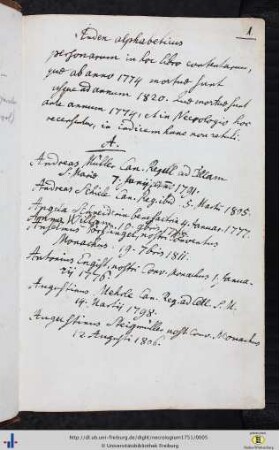 1
Index alphabeticus
personarum in hoc libro contentarum,
quae ab anno 1774 mortuae sunt
usque ad annum 1820. quae mortuae sunt
ante annum 1774. et in Necrologio hoc
recensentur, in Indicem hunc non retuli.
A.
Andreas Müller Can. Regul. ad Cellam
S. Mariae 7. Junij 1791.
Andreas Schile Can. Reg. ibid. 5. Martii 1805.
Januar. 1777.
Anselmus nostri Conventus
Monachus. 19. 7bris 1811.
Antonius nostri Conv. Monachus 1. Janua-
rij 1776.
Augustinus Can. Reg. ad Cell. S. M.
14. Martij 1798.
Augustinus nostri Conv. Monachus
12 Augusti 1806.
http://dl.ub.uni-freiburg.de/diglit/necrologium1751/0605
© Universitätsbibliothek Freiburg